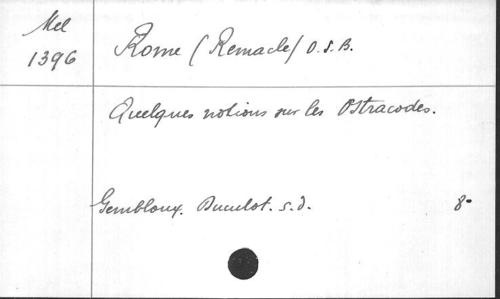 Mel
1396
Rome (Remacle) O.S.B.
Quelques notions sur les Ostracodes.
Gembloux. Duculot. s.d.
8°